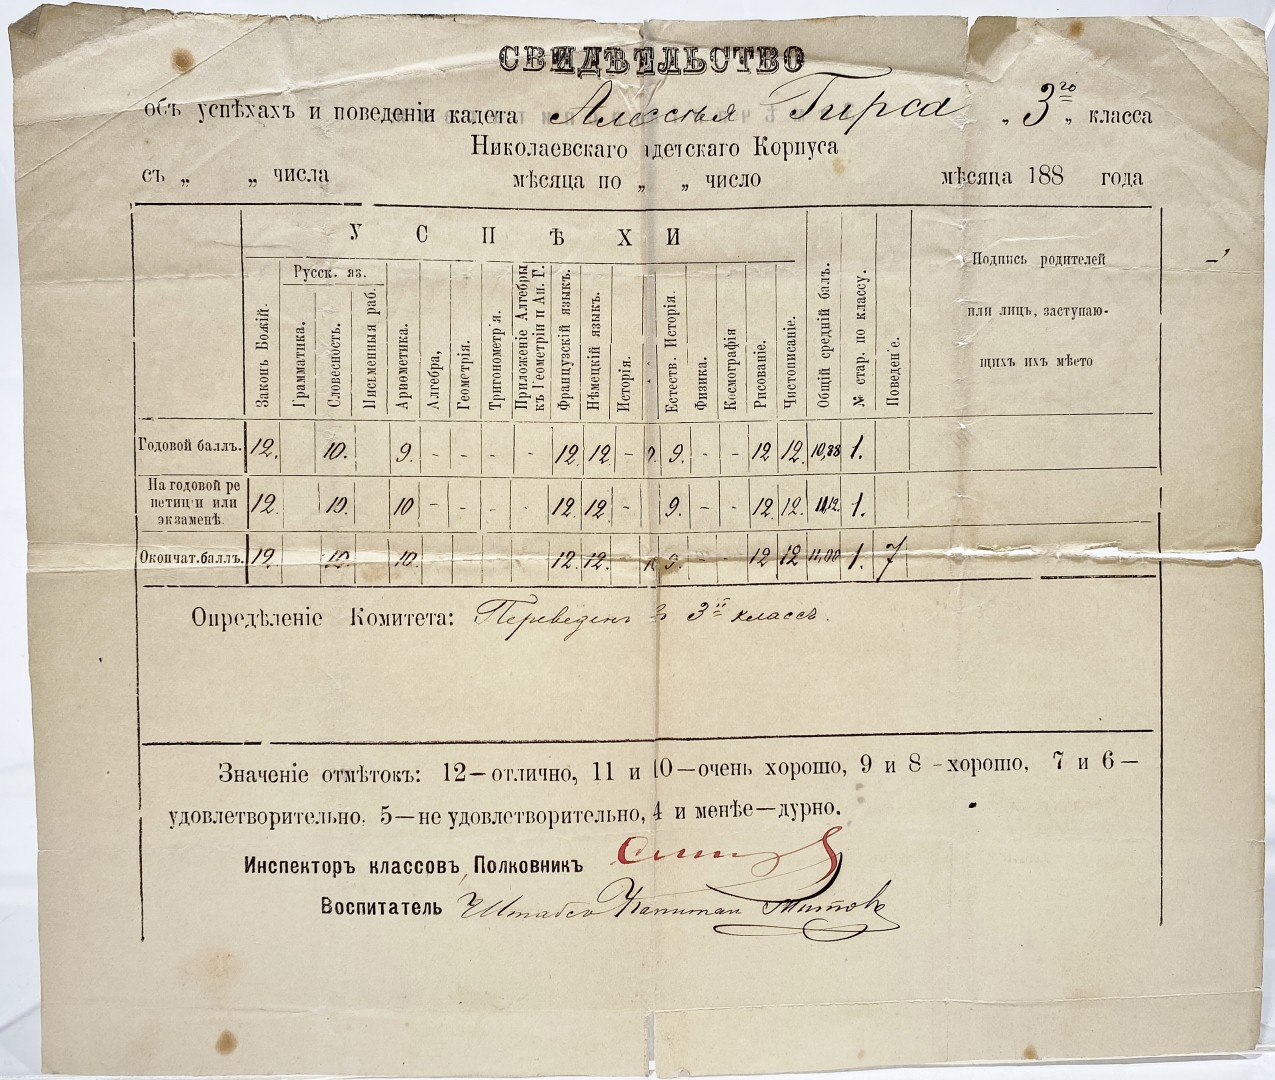 СВИДѢТЕЛЬСТВО
объ успѣхахъ и поведеніи кадета Алексѣя Гирса „ 3го „ класса
Николаевскаго адетскаго Корпуса
съ „ „ числа мѣсяца по „ „ число мѣсяца 188 года
УСПѢХИ
Законъ Божій.
Русск. яз.
Грамматика.
Словесность.
Письменныя раб.
Ариѳметика.
Алгебра,
Геометрія.
Тригонометр'я.
Приложеніе Алгебры
къ Геометріи и Ан. Г.
Французскій языкъ.
Нѣмецкій языкъ.
Исторія.
Естеств. Исторія.
Физика.
Космографія
Рисованіе.
Чистописаніе.
Общій средній балъ.
№ стар. по классу.
Поведен'е.
Подпись родителей
или лицъ, заступаю-
щихъ ихъ мѣсто
Годовой баллъ. 12. 10. 9. - - - - 12. 12. - 9. - - 12 12. 10,88 1.
На годовой ре
петиц'и или
экзаменѣ.
12. 10. 10 - - - - 12. 12. - 9. - - 12. 12. 11,12. 1.
Окончат.баллъ. 12. 10. 10. 12. 12. 9. - - 12 12 11,00 1. 7
Опредѣленіе Комитета: Переведенъ въ 3й классъ.
Значеніе отмѣтокъ: 12—отлично, 11 и 10—очень хорошо, 9 и 8 -хорошо, 7 и 6—
удовлетворительно. 5—не удовлетворительно, 4 и менѣе—дурно.
Инспекторъ классовъ, Полковникъ
Воспитатель Штабсъ Капитан